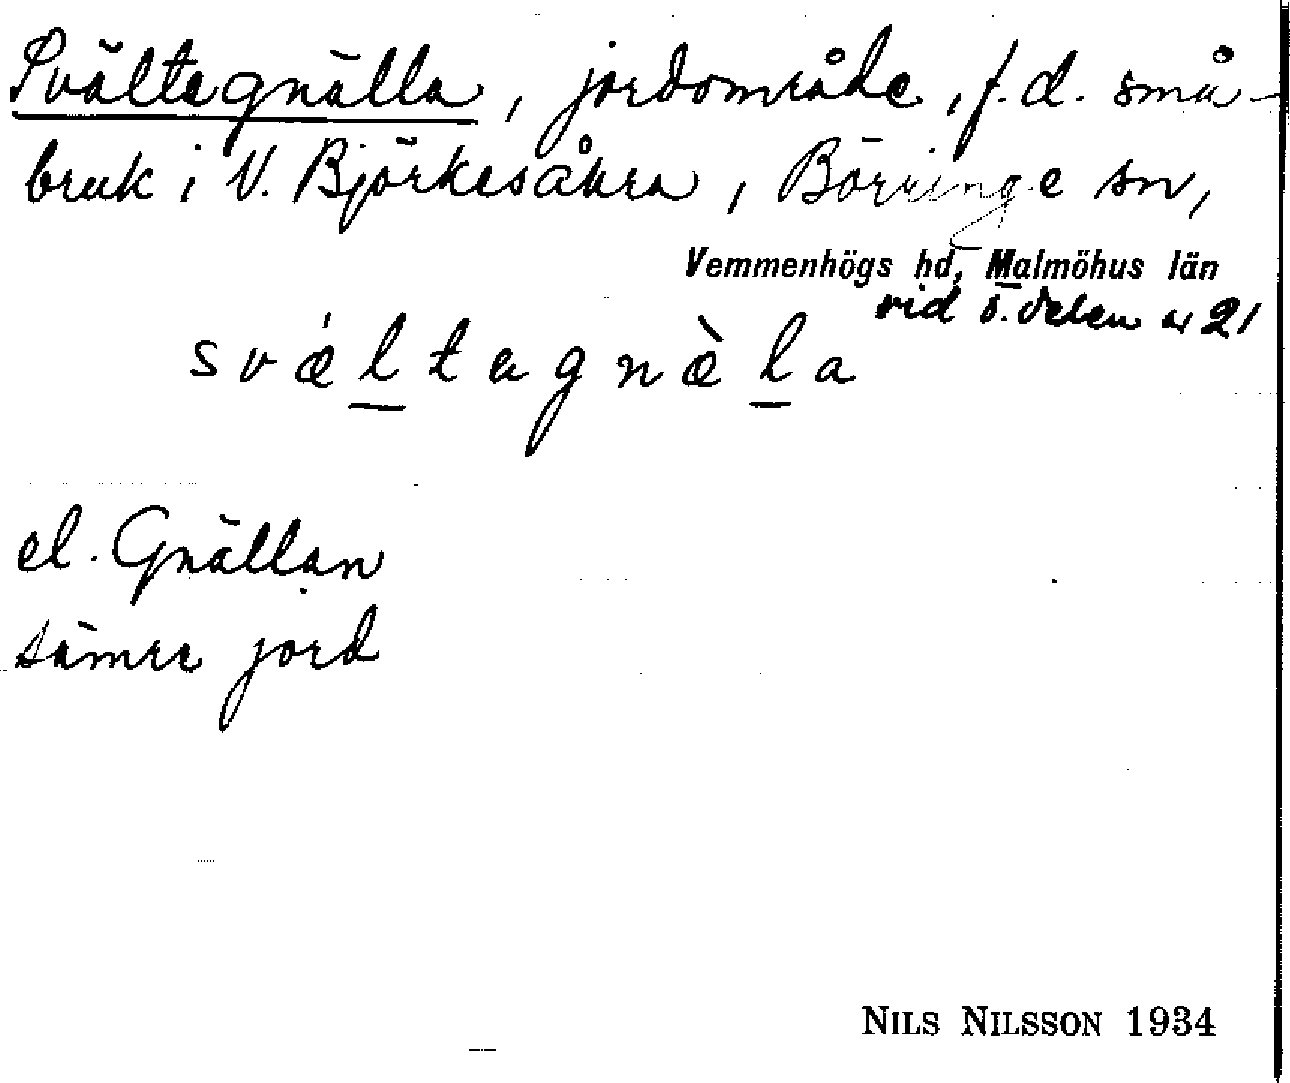 Svältagnälla, jordområde, f.d. små-
bruk i V. Björkesåkra, Börringe sn,
Vemmenhögs hd, Malmöhus län
vid ö. delen av 21
svǽltagnæ̀la
el. Gnällan
sämre jord
NILS NILSSON 1934